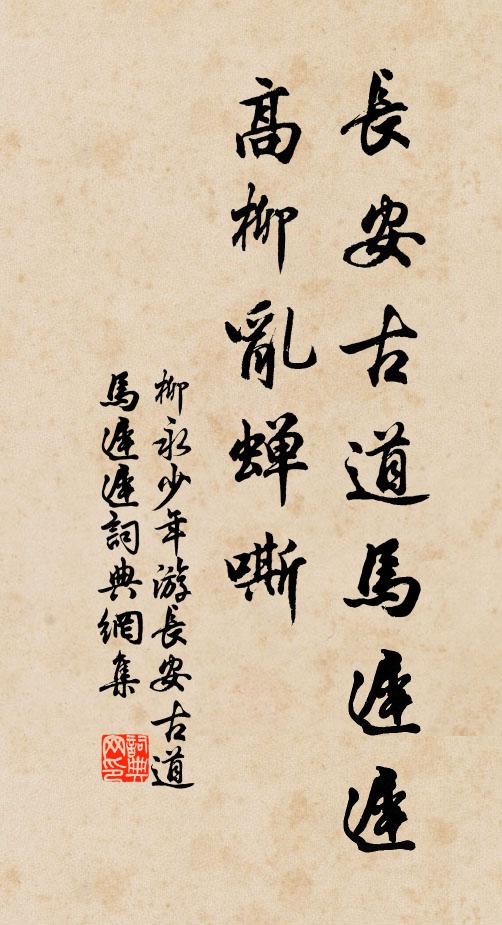 長安古道馬遲遲
高柳亂蟬嘶
柳永少年游長安古道
馬遲遲詞典網集
詞典
网印